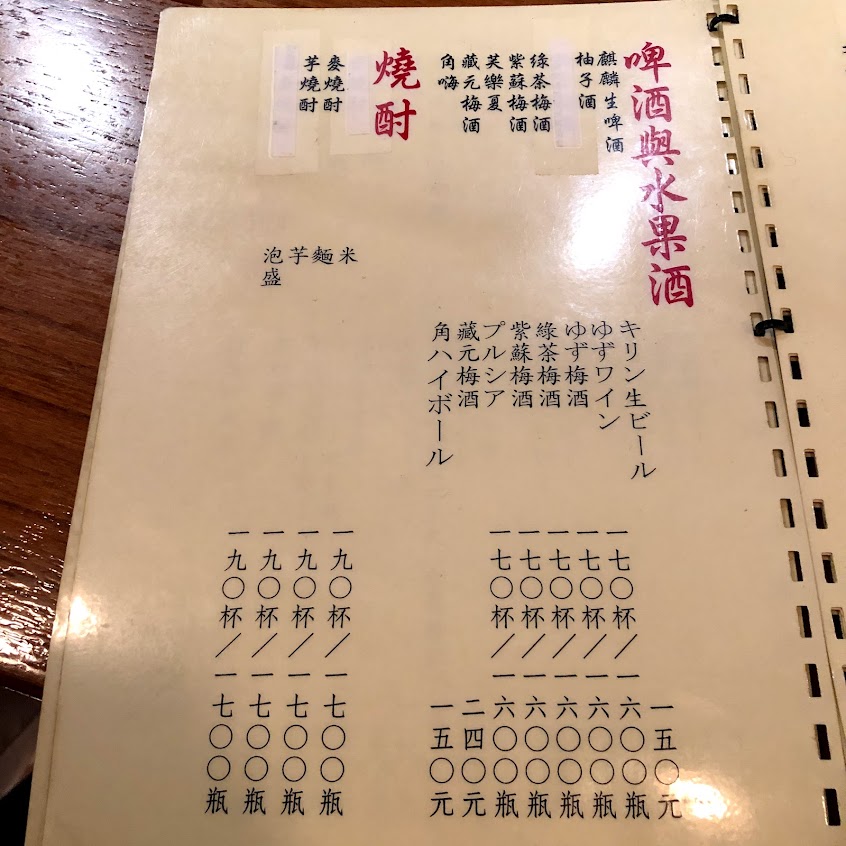 啤酒與水果酒
麒麟生啤酒
柚子酒
綠茶梅酒
紫蘇梅酒
芙樂夏
藏元梅酒
角嗨
キリン生ビール
ゆずワイン
ゆず梅酒
綠茶梅酒
紫蘇梅酒
プルシア
藏元梅酒
角ハイボール
一五〇元
一七〇杯／一六〇〇瓶
一七〇杯／一六〇〇瓶
一七〇杯／一六〇〇瓶
一七〇杯／一六〇〇瓶
一七〇杯／一六〇〇瓶
二四〇元
一五〇元
燒酎
麥燒酎
芋燒酎
米
麵
芋
泡盛
一九〇杯／一七〇〇瓶
一九〇杯／一七〇〇瓶
一九〇杯／一七〇〇瓶
一九〇杯／一七〇〇瓶